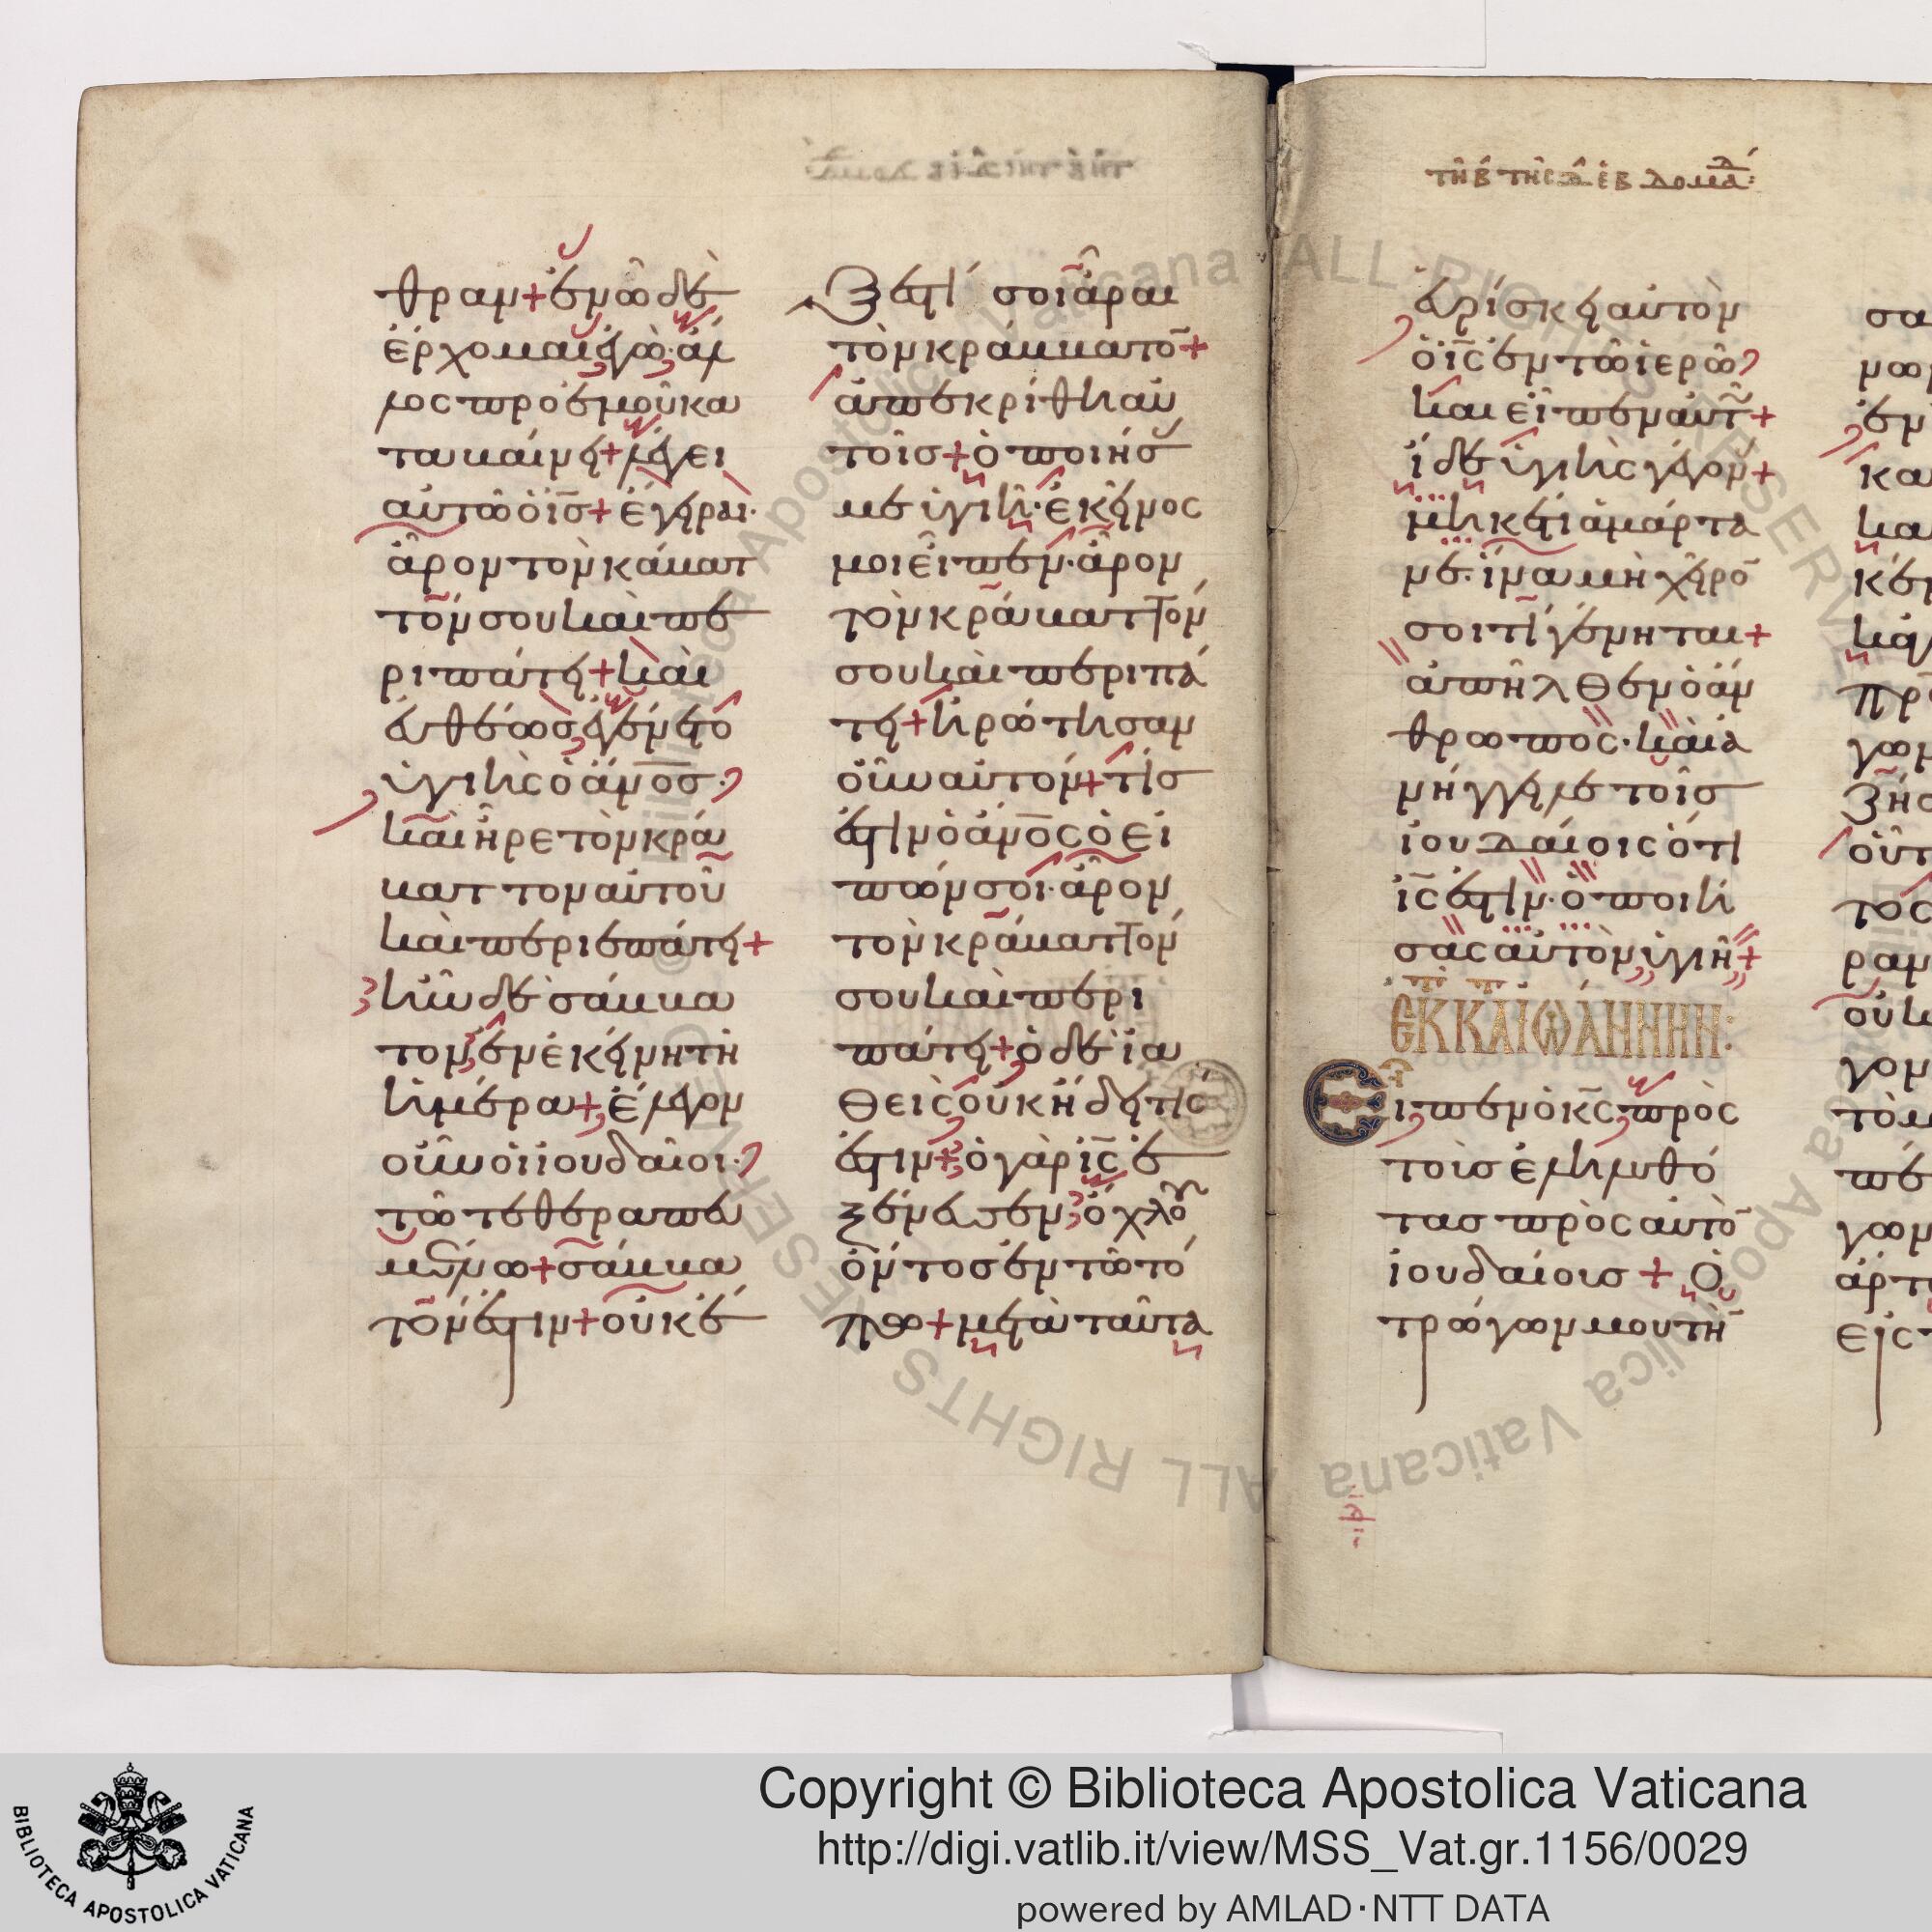 θραν+ ἐν ὧ δὲ
ἔρχομαι ἐγὼ· ἄλ
λος πρὸ ἐμοῦ κα
ταβαίνει+ λέγει
αὐτῶ ὁ ῑς̄+ ἔγειραι·
ἆρον τὸν κράβατ
τόν σου καὶ πε
ριπάτει+ καὶ
εὐθέως ἐγένετο
ὑγιὴς ὁ ἄν̅ο̅ς̅·
καὶ ἦρε τὸν κρά
βαττον αὐτοῦ
καὶ περιεπάτει+
ἦν δὲ σάββα
τον ἐν ἐκείνη τῆ
ἡμέρα+ ἔλεγον
οὖν οἱ ἰουδαῖοι·
τῶ τεθεραπευ
μένω+ σάββα
τόν ἐστιν+ οὐκ ἔ
ξεστί σοι ἆραι
τὸν κράββατο̅+
ἀπεκρίθη αὐ
τοῖς+ ὁ ποιήσ
με ὑγιῆ· ἐκεῖνος
μοι εἶπεν· ἆρον
τὸν κράβαττόν
σου καὶ περιπά
τει+ ἠρώτησαν
οὖν αὐτόν+ τίς
ἐστιν ὁ ἄν̅ο̅ς̅ ὁ εἰ
πών σοι· ἆρον
τὸν κράβαττόν
σου καὶ περι
πάτει+ ὁ δὲ ἰα
θεὶς οὐκ ἤδει τίς
ἐστιν+ ὁ γὰρ ῑς̄ ἐ
ξένευσεν ὄχλου
ὄντος ἐν τῶ τό
πω+ μετὰ ταῦτα
τῆ β τῆς δ ἑβδομάδ:
εὑρίσκει αὐτὸν
ὁ ῑς̄ ἐν τῶ ἱερῶ
καὶ εἶπεν αὐτῶ+
ἴδε ὑγιὴς γέγον+
μηκέτι ἁμάρτα
νε· ἵνα μὴ χεῖρο̅
σοι τί γένηται+
ἀπῆλθεν ὁ ἄν
θρωπος· καὶ ἀ
νήγγειλε τοῖς
ἰουδαίοις ὅτι
ῑς̄ ἐστιν· ὁ ποιή
σας αὐτὸν ὑγιῆ+
ΕΚ Κ̅Α̅Τ̅ ΙΩΑΝΝΗΝ:
Εἶπεν ὁ κ̅ς̅ πρὸς
τοὺς ἐληλυθό
τας πρὸς αὐτὸ̅
ἰουδαίους+ Ὁ
τρώγων μου τὴ̅
σα
νω
ἐν
κα
και
κεν
καγ
πρ
γων
ζης
οὗτ
τος
ραν
οὐκ
γον
τὸν
πε
γων
ἄρτ
εἰς
ALL RIGHTS RESERVED
© Biblioteca Apostolica Vaticana
Copyright © Biblioteca Apostolica Vaticana
http://digi.vatlib.it/view/MSS_Vat.gr.1156/0029
powered by AMLAD·NTT DATA
BIBLIOTECA APOSTOLICA VATICANA